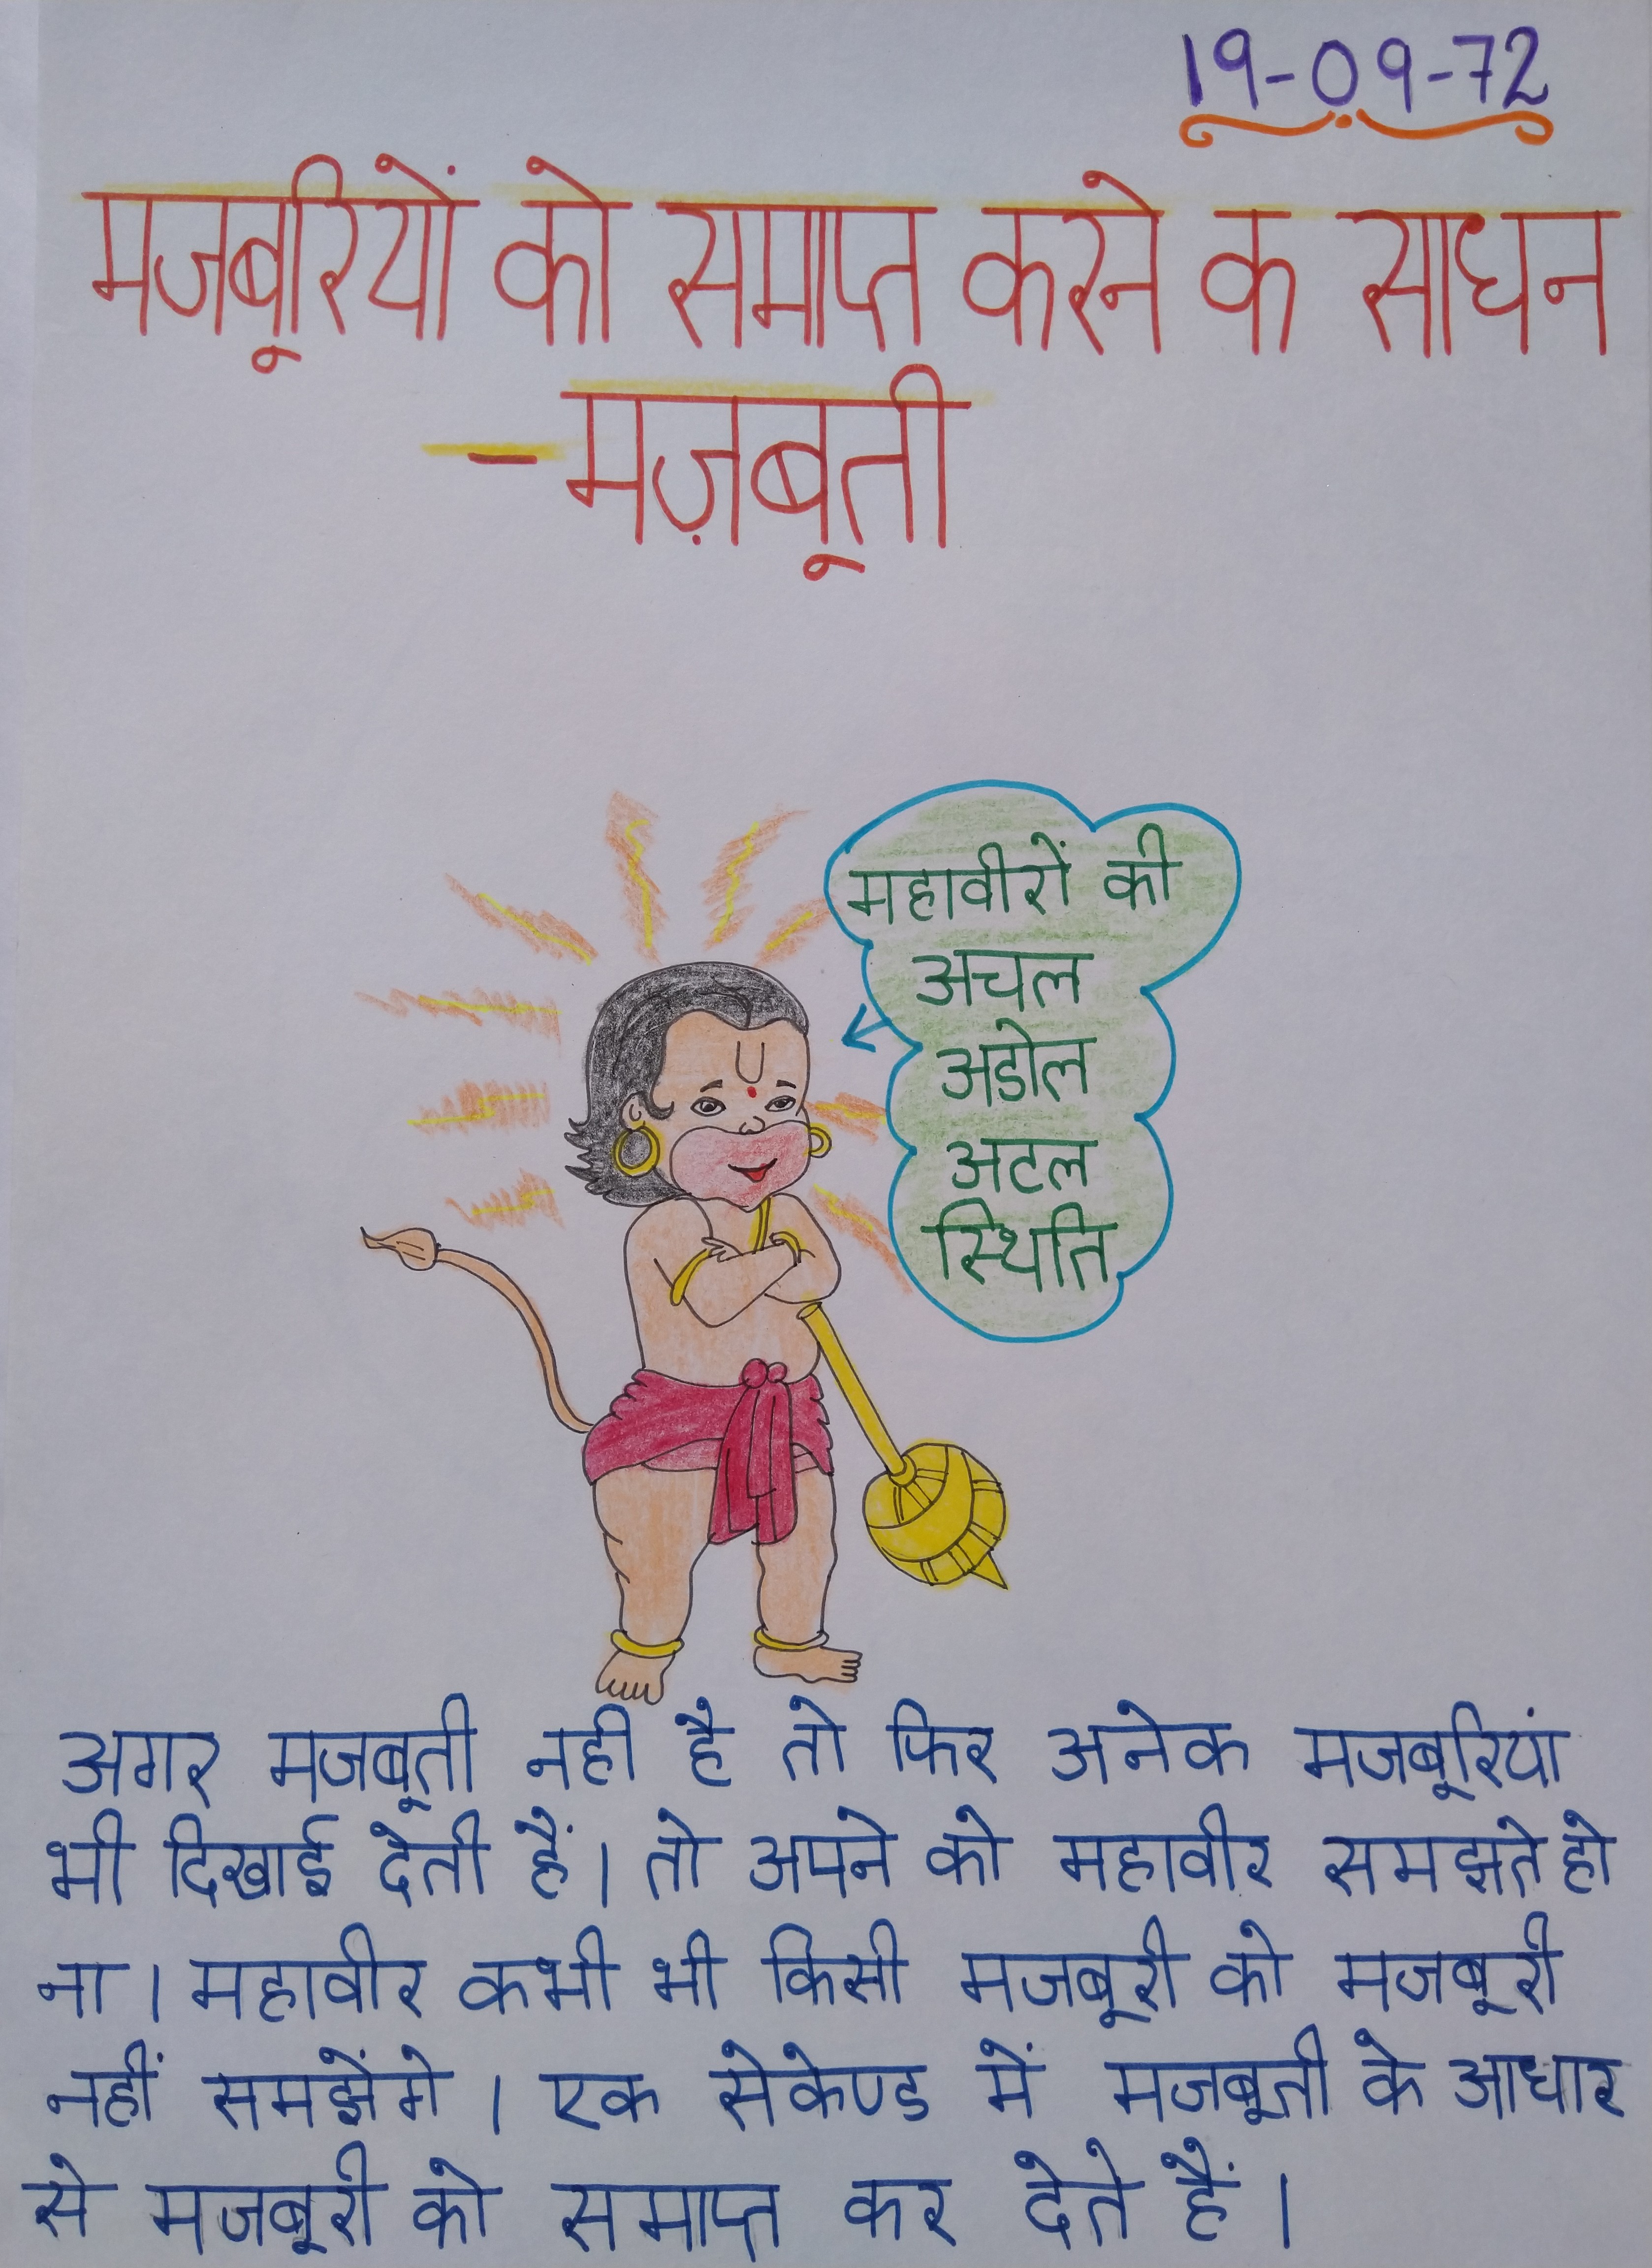 19-09-72
मजबूरियों को समाप्त करने क साधन
- मज़बूती
महावीरों की
अचल
अडोल
अटल
स्थिति
अगर मजबूती नही है तो फिर अनेक मजबूरियां
भी दिखाई देती हैं। तो अपने को महावीर समझते हो
ना। महावीर कभी भी किसी मजबूरी को मजबूरी
नहीं समझेंगे। एक सेकेण्ड में मजबूती के आधार
से मजबूरी को समाप्त कर देते हैं।